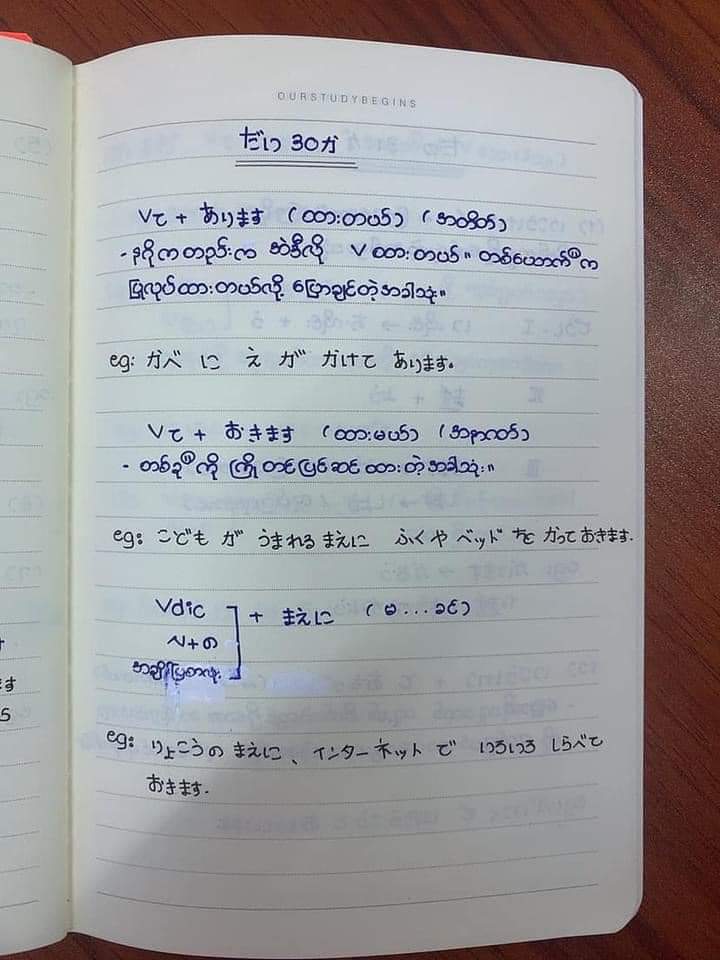 OURSTUDYBEGINS
だい 30 か
Vて + あります (ထားတယ်) (အတိတ်)
- နဂိုကတည်းက အဲဒီလို V ထားတယ်။ တစ်ယောက်ယောက်က
ပြုလုပ်ထားတယ်လို့ ပြောချင်တဲ့အခါသုံး။
eg: かべ に え が かけて あります。
Vて + おきます (ထားမယ်) (အနာဂတ်)
- တစ်ခုခုကို ကြိုတင်ပြင်ဆင် ထားတဲ့အခါသုံး။
eg: こども が うまれる まえに ふくや ベッド を かって おきます.
Vdic
N+の
အချိန်ပြစာလုံး
+ まえに (မ...ခင်)
eg: りょこうの まえに、インターネット で いろいろ しらべて
おきます.
ます
5